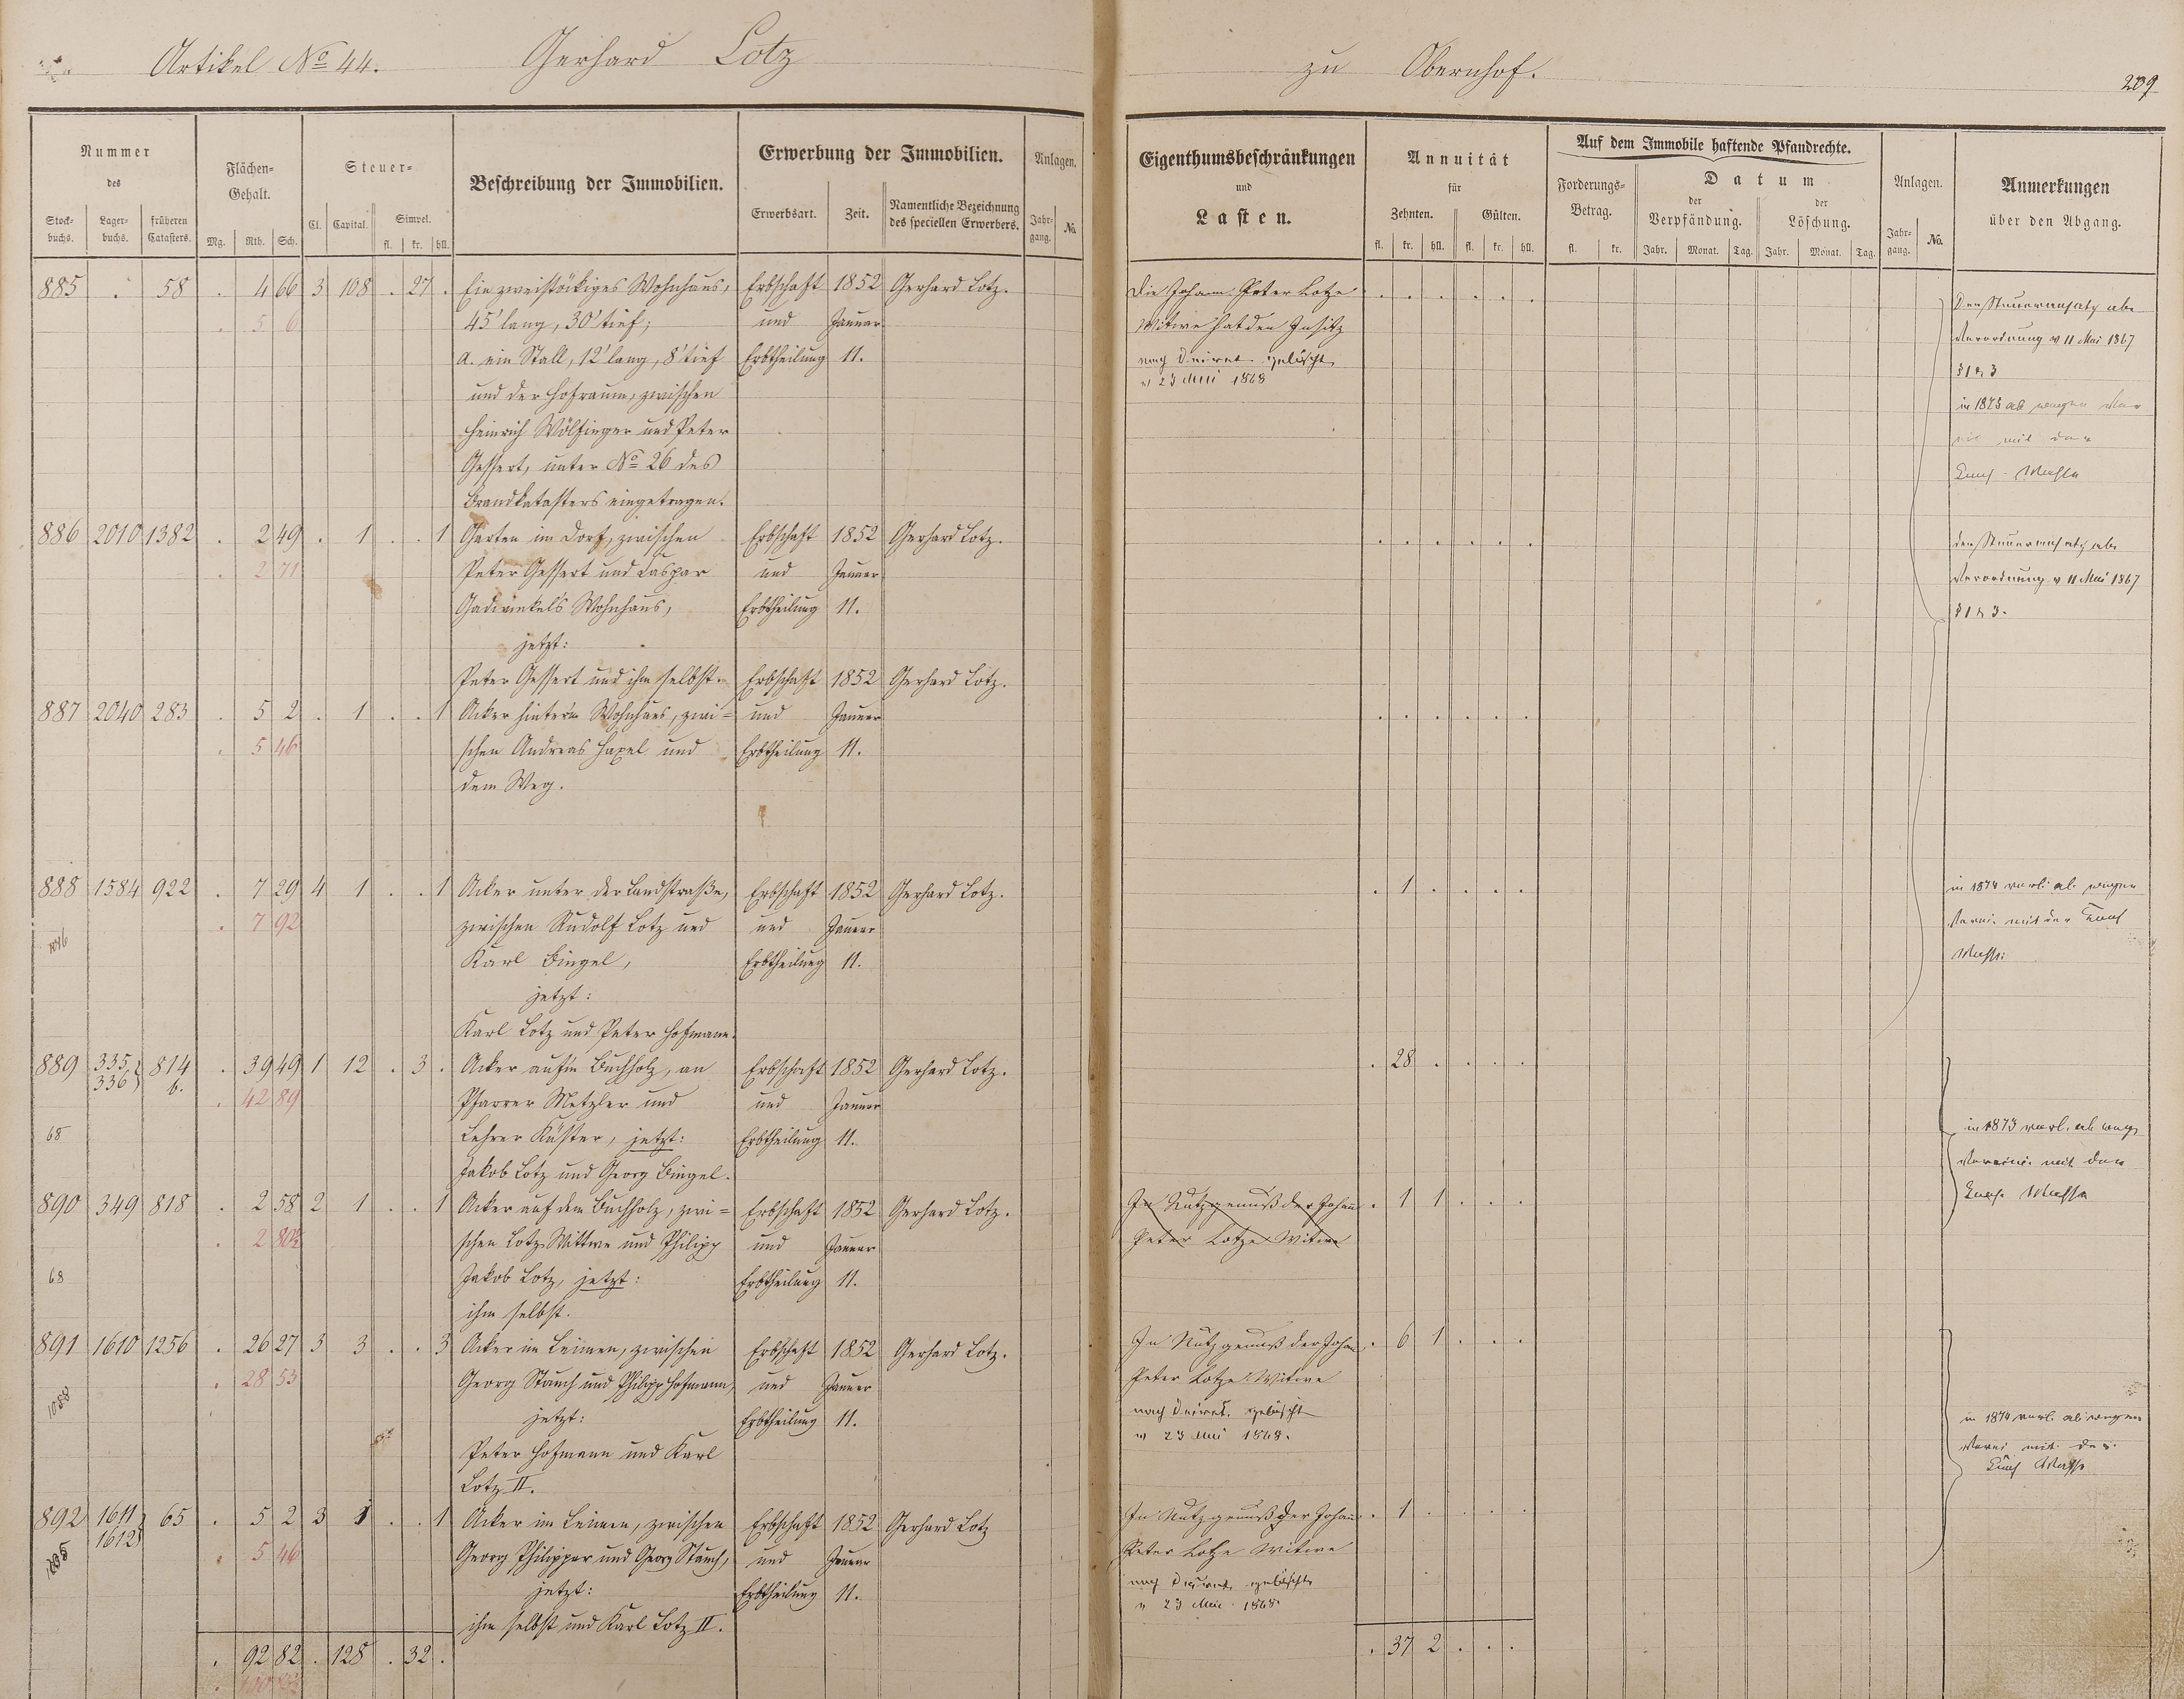 Artikel No 44.
Gerhard Lotz
zu Obernhof.
239
Nummer
des
Stock-
buchs.
Lager-
buchs.
früheren
Catasters.
Flächen-
Gehalt.
Mg. Rth. Sch.
Steuer-
Cl. Capital. Simpel.
fl. kr. hll.
Beschreibung der Immobilien.
Erwerbung der Immobilien.
Erwerbsart. Zeit.
Namentliche Bezeichnung
des speciellen Erwerbers.
Anlagen.
Jahr-
gang. No.
Eigenthumsbeschränkungen
und
Lasten.
Annuität
für
Zehnten. Gülten.
fl. kr. hll. fl. kr. hll.
Auf dem Immobile haftende Pfandrechte.
Forderungs-
Betrag.
fl. kr.
Datum
der
Verpfändung.
der
Löschung.
Jahr. Monat. Tag. Jahr. Monat. Tag.
Anlagen.
Jahr-
gang. No.
Anmerkungen
über den Abgang.
885 . 58 . 4 66 3 108 . 27 . Ein zweistöckiges Wohnhaus, Erbschaft 1852 Gerhard Lotz. Die Johann Peter Lotze . . . . . .
. 5 6 45' lang, 30' tief; und Januar Witwe hat den Insitz
a. ein Stall, 12' lang, 8' tief Erbtheilung 11. nach Decret gelöscht
und der Hofraum, zwischen
23 Mai 1868
Heinrich Wölfinger und Peter
Gessert, unter No 26 des
Brandkatasters eingetragen.
Den Steueransatz abe
Verordnung v 11 Mai 1867
§ 1 & 3
in 1873 ab wegen
mit der
Masse
886 2010 1382 . 2 49 . 1 . . 1 Garten im Dorf, zwischen Erbschaft 1852 Gerhard Lotz. . . . . . .
. 2 71 Peter Gessert und Caspar und Januar
Gadinkels Wohnhaus, Erbtheilung 11.
jetzt:
Peter Gessert und ihm selbst. Erbschaft 1852 Gerhard Lotz.
den Steueransatz abe
Verordnung v 11 Mai 1867
§ 1 & 3.
887 2040 283 . 5 2 . 1 . . 1 Acker hinterm Wohnhaus, zwi= und Januar . . . . . .
. 5 46 schen Andreas Haxel und Erbtheilung 11.
dem Weg.
888 1584 922 . 7 29 4 1 . . 1 Acker unter der Landstraße, Erbschaft 1852 Gerhard Lotz. . 1 . . . .
. 7 92 zwischen Rudolf Lotz und und Januar
Karl Bingel, Erbtheilung 11.
jetzt:
Karl Lotz und Peter Hofmann.
in 1874 ab wegen
Verei. mit der
Masse
889 335, 336 814 b. . 39 49 1 12 . 3 . Acker aufm Buchholz, an Erbschaft 1852 Gerhard Lotz. . 28 . . . .
. 42 89 Pfarrer Metzler und und Januar
68 Lehrer Küster, jetzt: Erbtheilung 11.
Jakob Lotz und Georg Bingel.
in 1873 ab weg.
Verein. mit der
Masse
890 349 818 . 2 58 2 1 . . 1 Acker auf dem Buchholz, zwi= Erbschaft 1852 Gerhard Lotz. In Nutzgenuß der Johann . 1 1 . . .
. 2 80½ schen Lotz Wittwe und Philipp und Januar Peter Lotze Witwe
68 Jakob Lotz, jetzt: Erbtheilung 11.
ihm selbst.
891 1610 1256 . 26 27 3 3 . . 3 Acker im Leimen, zwischen Erbschaft 1852 Gerhard Lotz. In Nutzgenuß der Johan . 6 1 . . .
. 28 53 Georg Stauch und Philipp Hofmann, und Januar Peter Lotze Witwe
jetzt: Erbtheilung 11. nach Decret. gelöscht
Peter Hofmann und Karl
23 Mai 1868.
Lotz II.
in 1874 ab wegen
Verei mit der
Masse
892 1611, 1612 65 . 5 2 3 1 . . 1 Acker im Leimen, zwischen Erbschaft 1852 Gerhard Lotz In Nutzgenuß der Johann . 1 . . . .
. 5 46 Georg Philippar und Georg Stauch, und Januar Peter Lotze Witwe
jetzt: Erbtheilung 11. nach Decret gelöscht
23 Mai 1868.
ihm selbst und Karl Lotz II.
. 92 82 . 128 . 32 . . 37 2 . . .